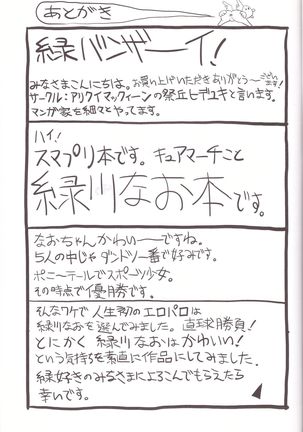 あとがき
緑バンザーイ!
みなさまこんにちは。お買い上げいただきありがとうーございます!
サークル:アリクイマックィーンの祭丘ヒデユキと言います。
マンガ家を細々とやってます。
ハイ!
スマプリ本です。キュアマーチこと
緑川なお本です。
なおちゃんかわいーーですね。
5人の中じゃダンドツ一番で好みです。
ポニーテールでスポーツ少女。
その時点で優勝です。
そんなワケで人生初のエロパロは
緑川なおを選んでみました。直球勝負!
とにかく緑川なおはかわいい!
という気持ちを素直に作品にしてみました。
緑好きのみなさまによろこんでもらえたら
幸いです。